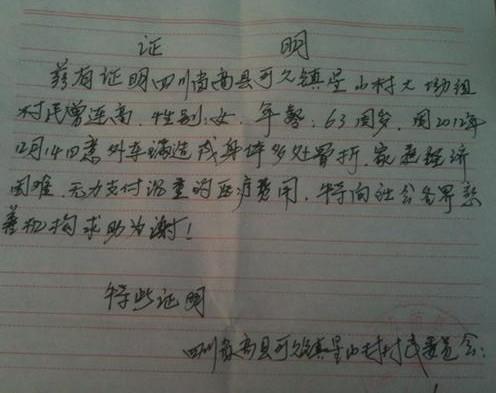 证 明
兹有证明四川省高县可久镇星山村大坳组
村民曾连高,性别:女,年龄:63周岁,因2012年
12月14日意外车祸造成身体多处骨折,家庭经济
困难,无力支付沉重的医疗费用,特向社会各界慈
善机构求助为谢!
特此证明
四川省高县可久镇星山村村民委员会: